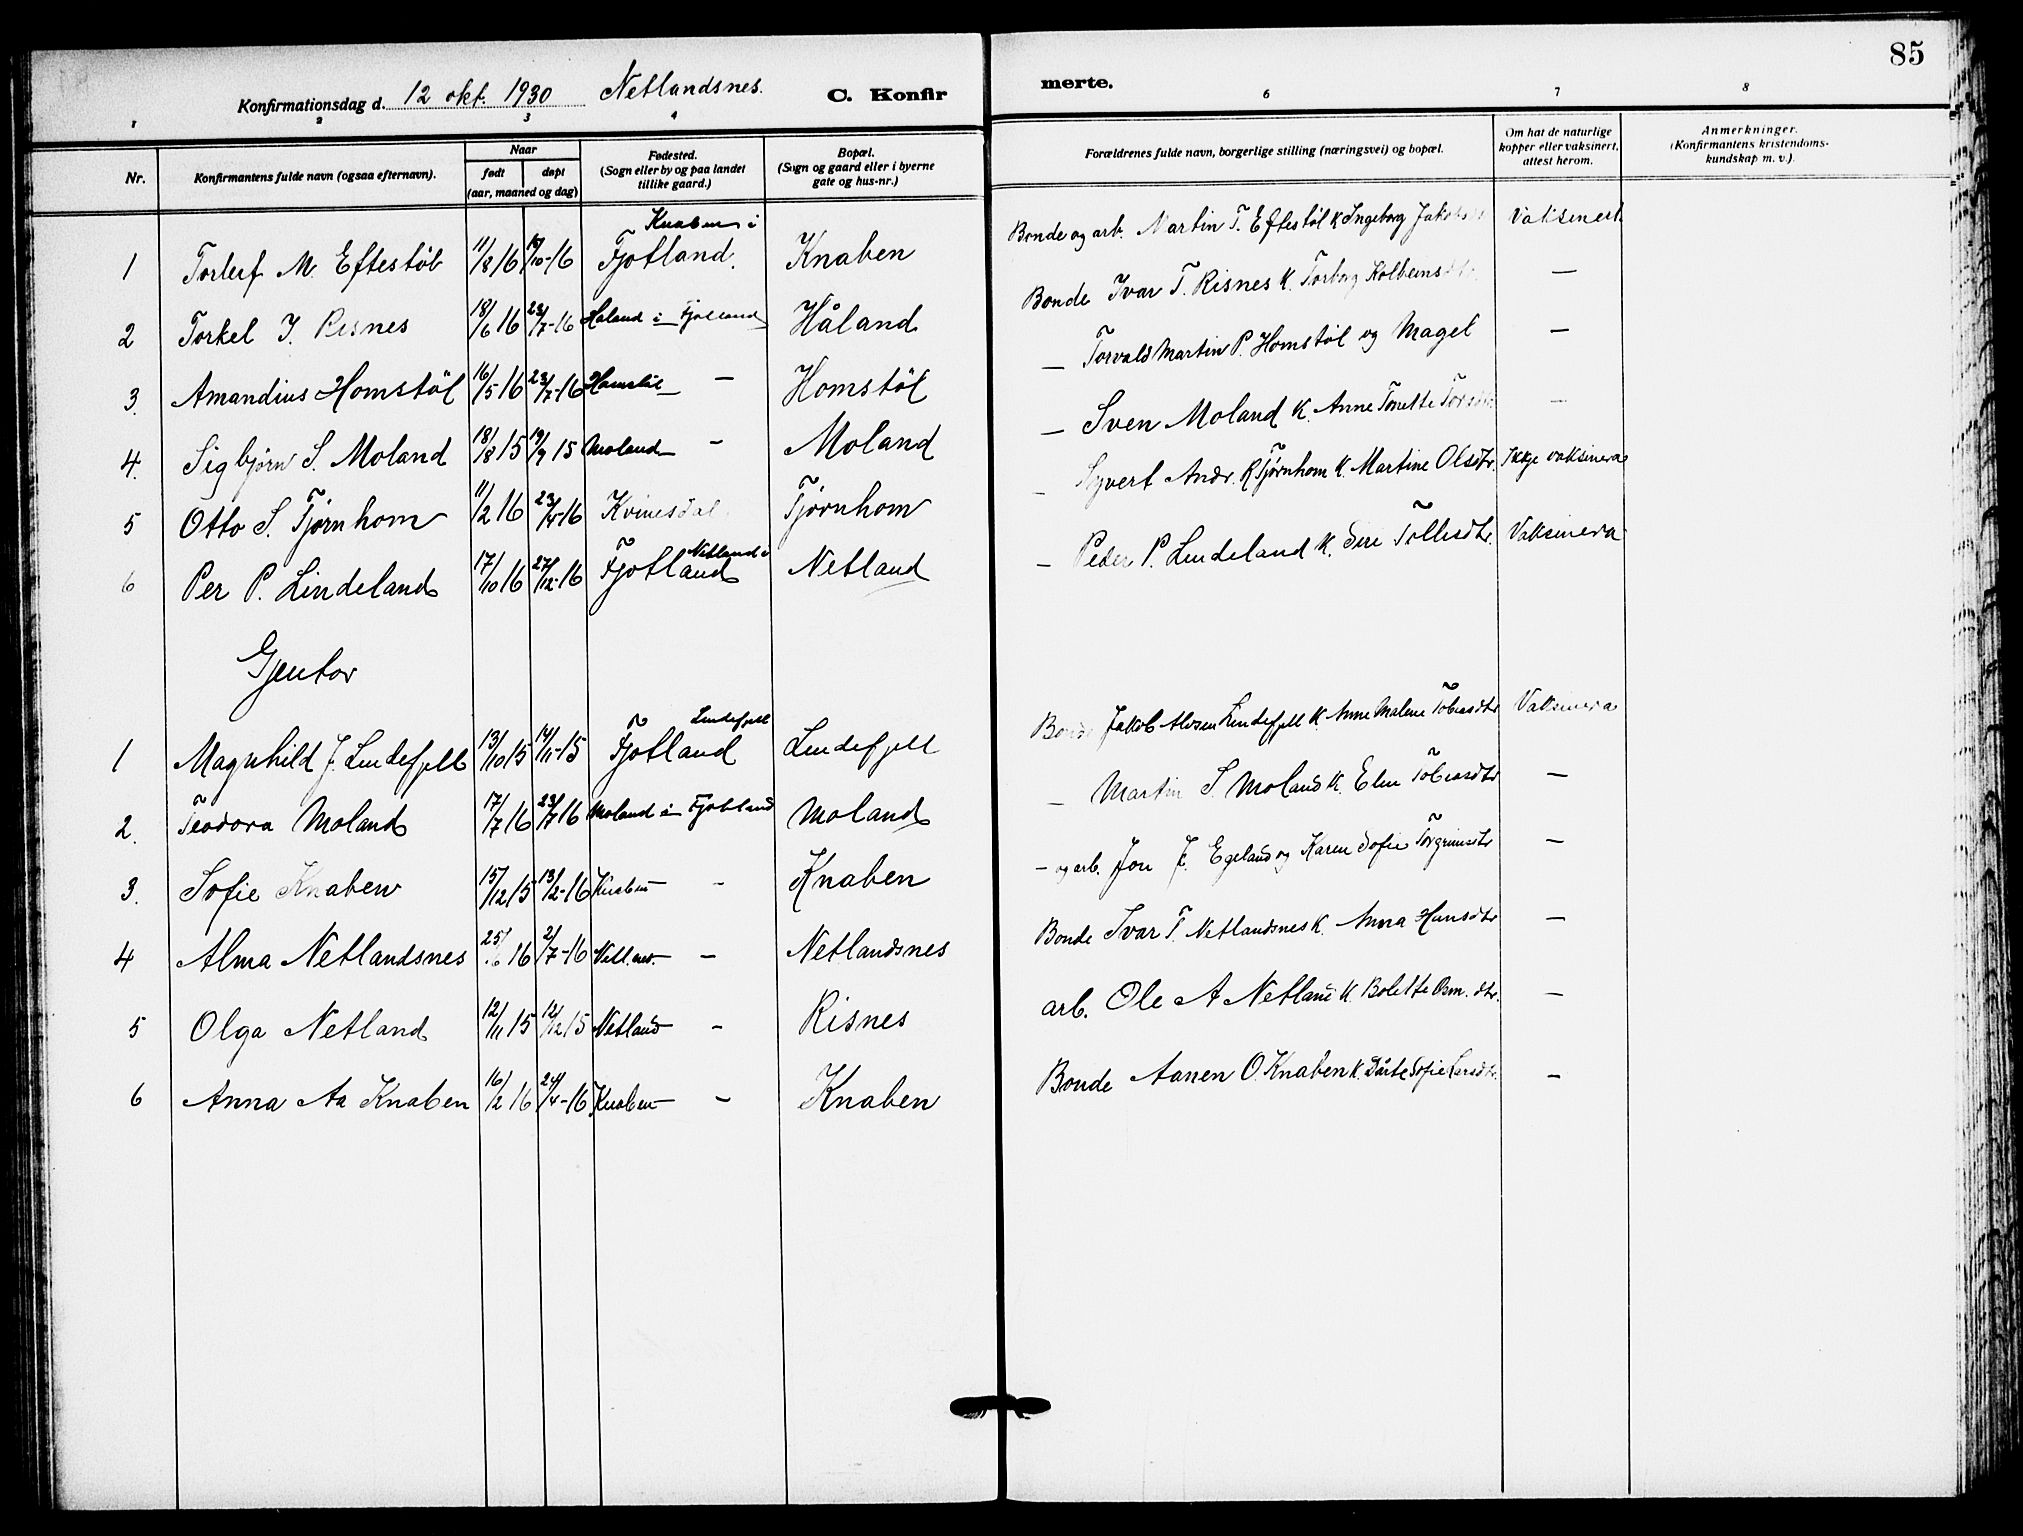 85
Konfirmationsdag d. 12 okt. 1930 Netlandsnes. C. Konfir merte.
1 2 3 4 6 7 8
Nr. Konfirmantens fulde navn (ogsaa efternavn). Naar født døpt (aar, maaned og dag) Fødested. (Sogn eller by og paa landet tillike gaard.) Bopæl. (Sogn og gaard eller i byerne gate og hus-nr.) Forældrenes fulde navn, borgerlige stilling (næringsvei) og bopæl. Om hat de naturlige kopper eller vaksinert, attest herom. Anmerkninger. (Konfirmantens kristendoms-kundskap m. v.).
1 Torleif M. Eftestøl 11/8 16 15/10-16 Knaben i Fjotland. Knaben Bonde og arb. Martin T. Eftestøl K Ingeborg Vaksinert
2 Torkel I. Risnes 18/6 16 23/7-16 Håland i Fjotland Håland Bonde Ivar T. Risnes K. Torborg Kolbeinsdtr. —
3. Amandius Homstøl 16/5 16 23/7-16 Homstøl — Homstøl — Torvald Martin P. Homstøl og Magel —
4. Sigbjørn S. Moland 18/8 15 19/9 15 Moland — Moland — Sven Moland K. Anne Tonette —
5 Otto S. Tjørnhom 11/2 16 23/4-16 Kvinesdal Tjørnhom — Syvert Andr. R Tjørnhom K. Martine Olsdtr. Ikkje vaksinera
6 Per P. Lindeland 17/10 16 27/12-16 Netland i Fjotland Netland — Peder P. Lindeland K. Siri Tollesdtr. Vaksinera
Gjentor
1 Magnhild J. Lindefjell 13/10 15 14/11-15 Lindefjell Fjotland Lindefjell Bonde Jakob Lindefjell K Anne Malene Tobiasdtr Vaksinera
2. Teodora Moland 17/7 16 23/7 16 Moland i Fjotland Moland — Martin S. Moland K. Elen Tobiasdtr —
3. Sofie Knaben 15/12 15 13/2-16 Knaben — Knaben — og arb. Jon J. Egeland og Karen Sofie Torgrimsdtr —
4 Alma Netlandsnes 25/6 16 2/7-16 — Netlandsnes Bonde Ivar T. Netlandsnes K. Anna Hansdtr —
5 Olga Netland 12/11 15 12/12 15 Netland — Risnes arb. Ole A Netland K. Bolette Osm. dtr. —
6 Anna Aa Knaben 16/2 16 24/4-16 Knaben — Knaben Bonde Aanen O. Knaben K. Dårte Sofie Larsdtr. —